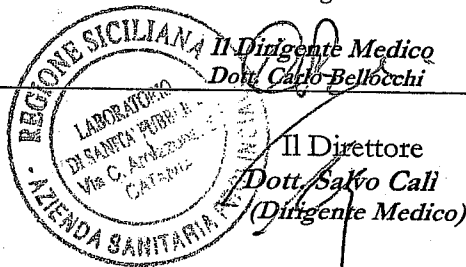 REGIONE SICILIANA
AZIENDA SANITARIA
LABORATORIO
DI SANITA' PUBB
Via C.
CATANIA
Il Dirigente Medico
Dott. Carlo Bellocchi
Il Direttore
Dott. Salvo Calì
(Dirigente Medico)